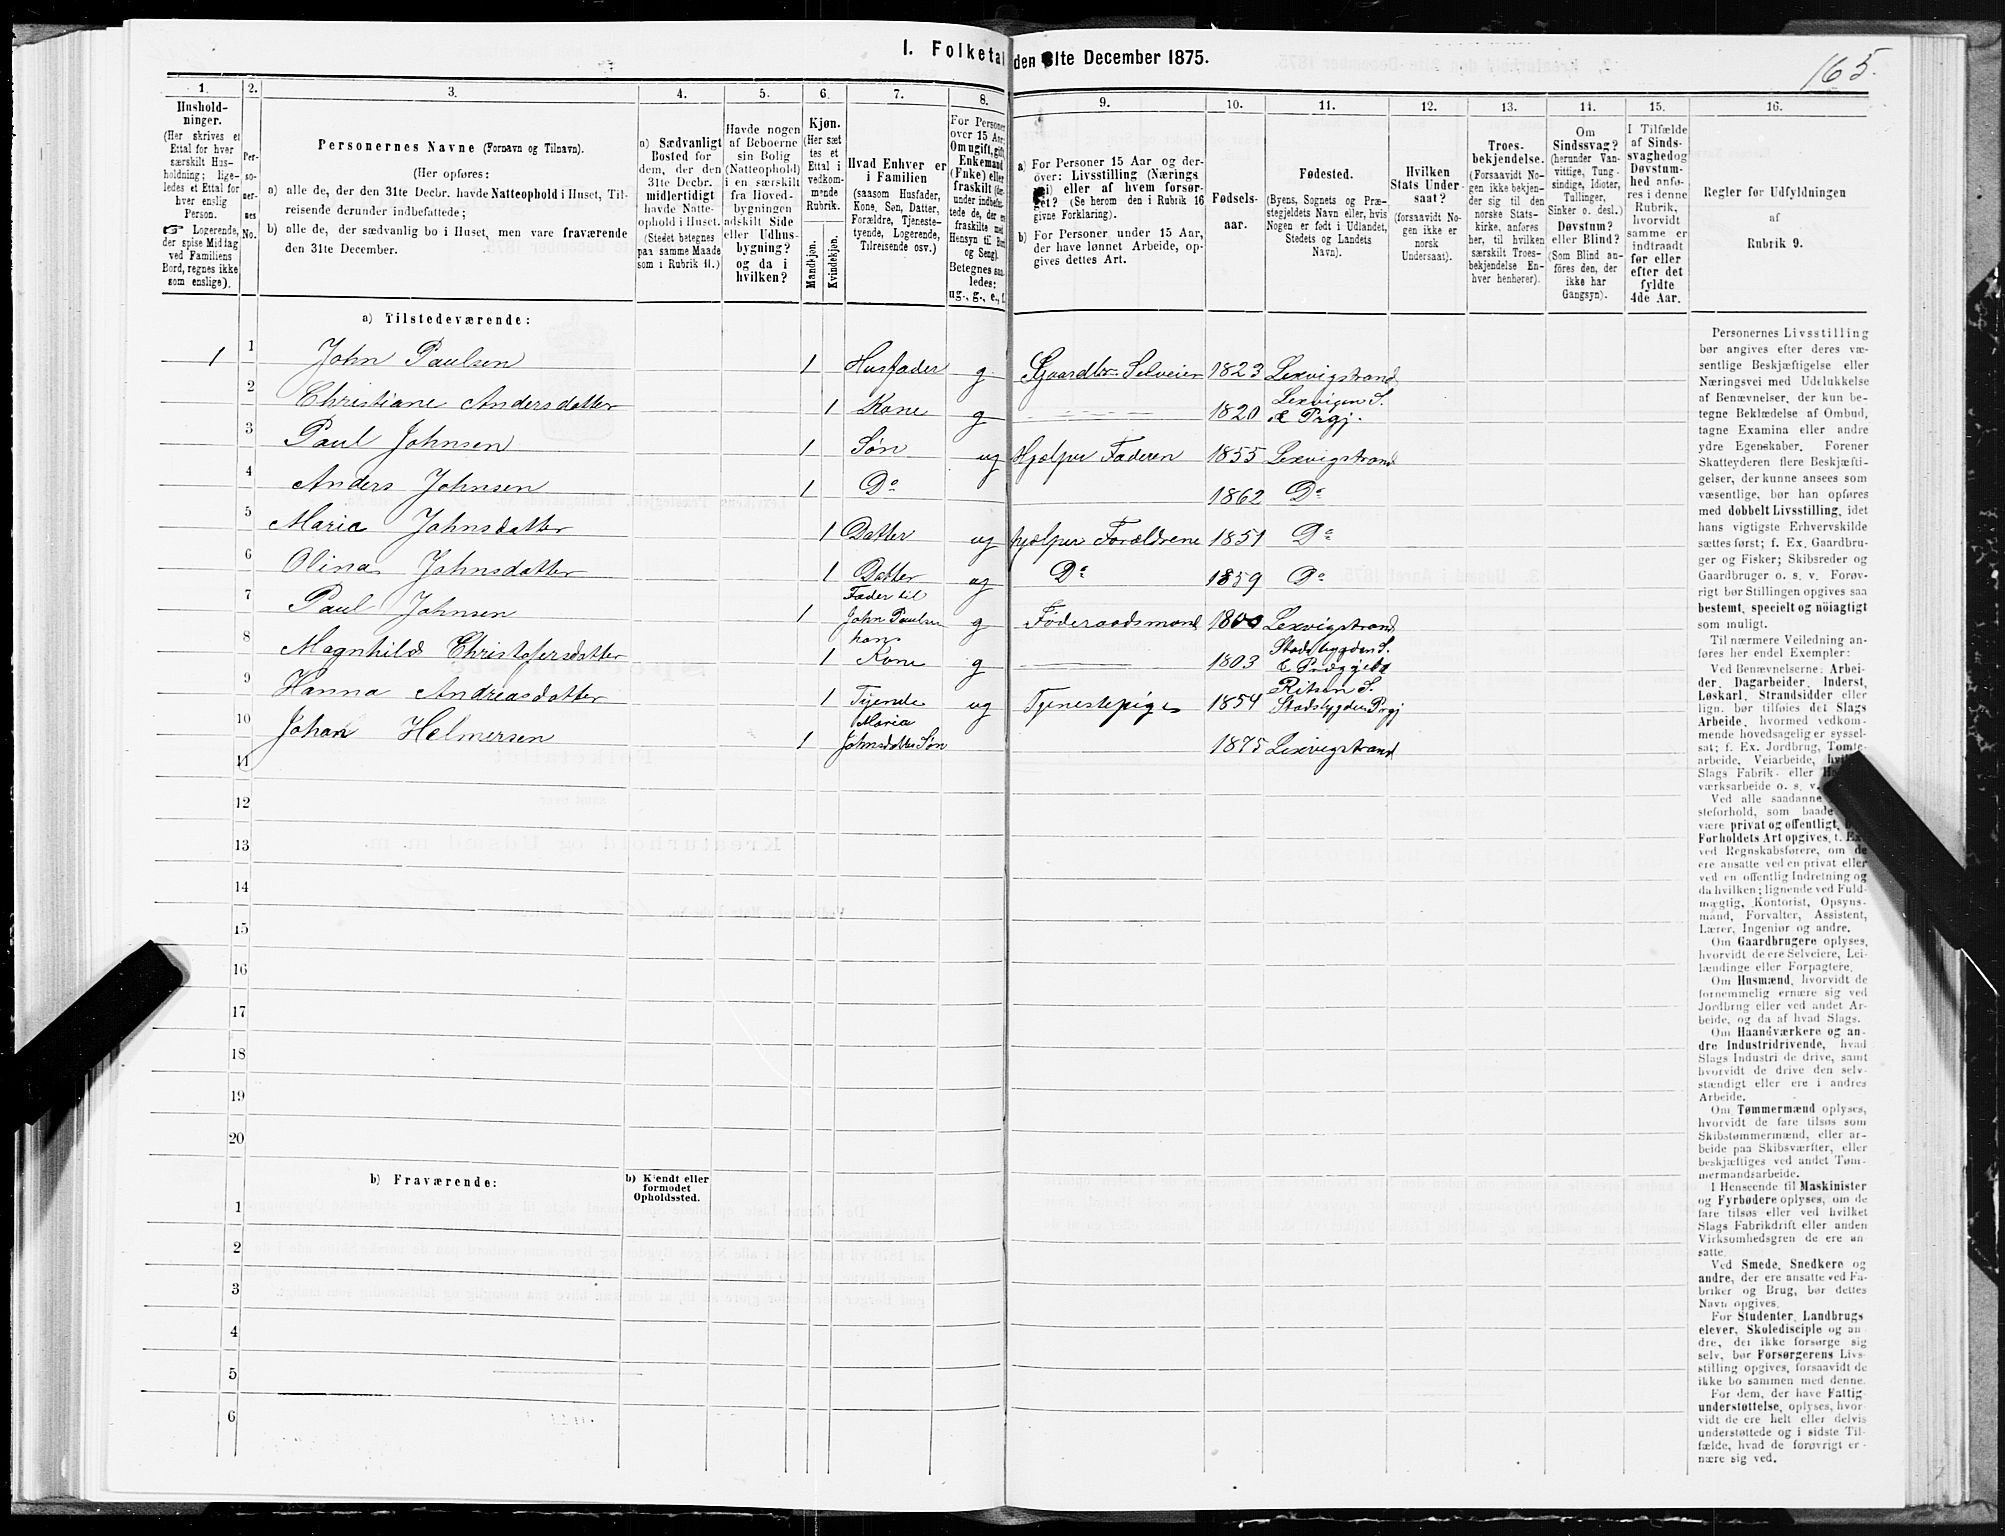 I. Folketal den 31te December 1875.
165.
1.
2.
3.
4.
5.
6.
7.
8.
9.
10.
11.
12.
13.
14.
15.
16.
Hushold-
ninger.
(Her skrives et
Ettal for hver
særskilt Hus-
holdning; lige-
ledes et Ettal for
hver enslig
Person.
☞ Logerende,
der spise Middag
ved Familiens
Bord, regnes ikke
som enslige).
Per-
so-
ner-
nes
No.
Personernes Navne (Fornavn og Tilnavn).
(Her opføres:
a) alle de, der den 31te Decbr. havde Natteophold i Huset, Til-
reisende derunder indbefattede;
b) alle de, der sædvanlig bo i Huset, men vare fraværende
den 31te December.
a) Sædvanligt
Bosted for
dem, der den
31te Decbr.
midlertidigt
havde Natte-
ophold i Huset.
(Stedet betegnes
paa samme Maade
som i Rubrik 11.)
Havde nogen
af Beboerne
sin Bolig
(Natteophold)
i en særskilt
fra Hoved-
bygningen
adskilt Side
eller Udhus-
bygning?
og da i
hvilken?
Kjøn.
(Her sæt
tes et
Ettal i
vedkom-
mende
Rubrik.
Mandkjøn.
Kvindekjøn.
Hvad Enhver er
i Familien
(saasom Husfader,
Kone, Søn, Datter,
Forældre, Tjeneste-
tyende, Logerende,
Tilreisende osv.)
For Personer
over 15 Aar:
Om ugift, gift,
Enkemand
(Enke) eller
fraskilt
Betegnes saa-
ledes:
ug., g., e., f.
a) For Personer 15 Aar og der-
over: Livsstilling (Nærings
vei) eller af hvem forsør-
get? (Se herom den i Rubrik 16
givne Forklaring).
b) For Personer under 15 Aar,
der have lønnet Arbeide, op-
gives dettes Art.
Fødsels-
aar.
Fødested.
(Byens, Sognets og Præ-
stegjeldets Navn eller, hvis
Nogen er født i Udlandet,
Stedets og Landets
Navn).
Hvilken
Stats Under-
saat?
(forsaavidt No-
gen ikke er
norsk
Undersaat).
Troes-
bekjendelse.
(Forsaavidt No-
gen ikke bekjen-
der sig til den
norske Stats-
kirke, anføres
her, til hvilken
særskilt Troes-
bekjendelse En-
hver henhører).
Om
Sindssvag?
(herunder Van-
vittige, Tung-
sindige, Idioter,
Tullinger,
Sinker o. desl.)
Døvstum?
eller Blind?
(Som Blind an-
føres den, der
ikke har
Gangsyn).
I Tilfælde
af Sinds-
svaghed og
Døvstum-
hed anfø-
res i denne
Rubrik,
hvorvidt
samme er
indtraadt
før eller
efter det
fyldte
4de Aar.
Regler for Udfyldningen
af
Rubrik 9.
a) Tilstedeværende:
1 1 John Paulsen 1 Husfader g Gaardbr. Selveier 1823 Lexvigstrand
2 Christiane Andersdatter 1 Kone g 1820 Lexvigen S. & Prgj.
3 Paul Johnsen 1 Søn ug Hjælper Faderen 1855 Lexvigstrand
4 Anders Johnsen 1 Do 1862 Do
5 Maria Johnsdatter 1 Datter ug hjælper Forældrene 1851 Do
6 Olina Johnsdatter 1 Datter ug Do 1859 Do
7 Paul Johnsen 1 Fader til John Paulsen g Føderaadsmand 1800 Lexvigstrand
8 Magnhild Christofersdatter 1 hans Kone g 1803 Stadsbygden S.
9 Hanna Andreasdatter 1 Tyende ug Tjenestepige 1854 Ritsen S. Stadsbygden Prgj
10 Johan Helmersen 1 Maria Johnsdatter Søn 1875 Lexvigstrand
11
12
13
14
15
16
17
18
19
20
b) Fraværende:
b) Kjendt eller
formodet
Opholdssted.
1
2
3
4
5
6
Personernes Livsstilling
bør angives efter deres væ-
sentlige Beskjæftigelse eller
Næringsvei med Udelukkelse
af Benævnelser, der kun be-
tegne Beklædelse af Ombud,
tagne Examina eller andre
ydre Egenskaber. Forener
Skatteyderen flere Beskjæfti-
gelser, der kunne ansees som
væsentlige, bør han opføres
med dobbelt Livsstilling, idet
hans vigtigste Erhvervskilde
sættes først; f. Ex. Gaardbru-
ger og Fisker; Skibsreder og
Gaardbruger o. s. v. Forøv-
rigt bør Stillingen opgives saa
bestemt, specielt og nöiagtigt
som muligt.
Til nærmere Veiledning an-
føres her endel Exempler:
Ved Benævnelserne: Arbei-
der, Dagarbeider, Inderst,
Løskarl, Strandsidder eller
lign. bør tilføies det Slags
Arbeide, hvormed vedkom-
mende hovedsagelig er syssel-
sat; f. Ex. Jordbrug, Tomte-
arbeide, Veiarbeide,
Slags Fabrik- eller
værksarbeide o. s. v.
Ved alle saadanne
steforhold, som baade
være privat og offentligt,
Forholdets Art opgives, t. Ex.
ved Regnskabsførere, om de
ere ansatte ved en privat eller
ved en offentlig Indretning og
da hvilken; lignende ved Fuld-
mægtig, Kontorist, Opsyns-
mand, Forvalter, Assistent,
Lærer, Ingeniør og andre.
Om Gaardbrugere oplyses,
hvorvidt de ere Selveiere, Lei-
lændinge eller Forpagtere.
Om Husmænd, hvorvidt de
fornemmelig ernære sig ved
Jordbrug eller ved andet Ar-
beide, og da af hvad Slags.
Om Haandværkere og an-
dre Industridrivende, hvad
Slags Industri de drive, samt
hvorvidt de drive den selv-
stændigt eller ere i andres
Arbeide.
Om Tømmermænd oplyses,
hvorvidt de fare tilsøs som
Skibstømmermænd, eller ar-
beide paa Skibsværfter, eller
beskjæftiges ved andet Tøm-
mermandsarbeide.
I Henseende til Maskinister
og Fyrbødere oplyses, om de
fare tilsøs eller ved hvilket
Slags Fabrikdrift eller anden
Virksomhedsgren de ere an-
satte.
Ved Smede, Snedkere og
andre, der ere ansatte ved Fa-
briker og Brug, bør dettes
Navn opgives.
For Studenter, Landbrugs
elever, Skoledisciple og an-
dre, der ikke forsørge sig
selv, bør Forsørgerens Livs-
stilling opgives, forsaavidt de
ikke bo sammen med denne.
For dem, der have Fattig-
understøttelse, oplyses, hvor-
vidt de ere helt eller delvis
understøttede og i sidste Til-
fælde, hvad de forøvrigt er-
nære sig ved.